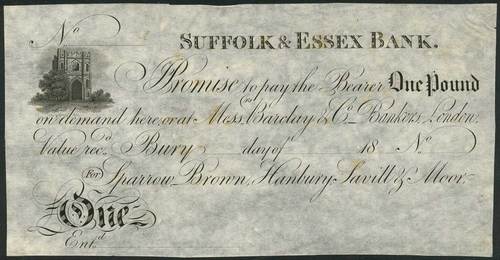 No
SUFFOLK & ESSEX BANK.
I Promise to pay the Bearer One Pound
on demand here, or at Messrs. Barclay & Co. Bankers, London.
Value recd. Bury day of 18 No
For Sparrow, Brown, Hanbury, Savill & Moor.
One
Entd.